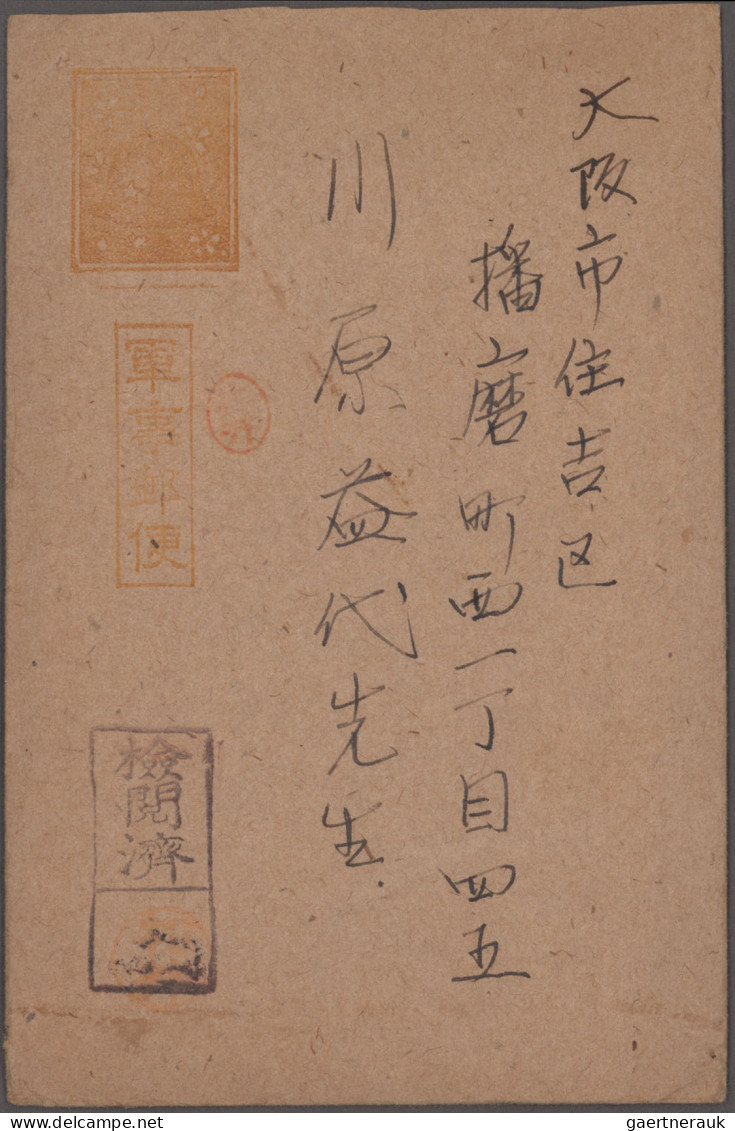 大阪市住吉区
播磨町西一丁目四五
川原益代先生
軍事郵便
檢閲濟
gaertnerauk